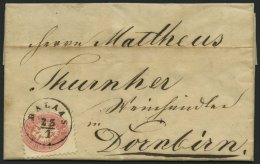 Herrn Mattheus
Thurnher
Weinhändler
in
Dornbirn.
DALAAS
25